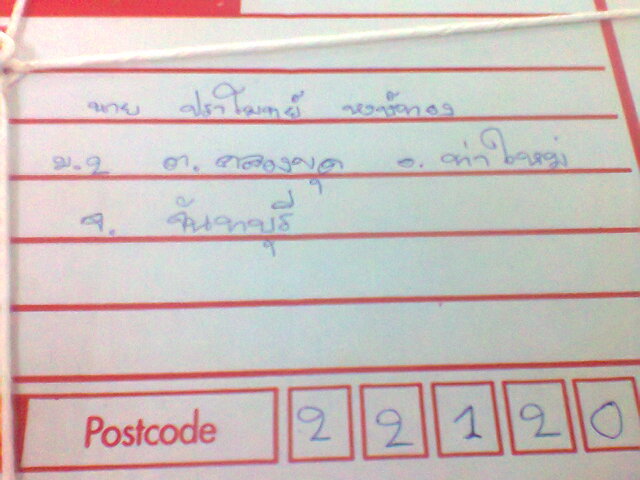 นาย ปราโมทย์ หงษ์ทอง
ม.2 ต.คลองขุด อ.ท่าใหม่
จ. จันทบุรี
Postcode 22120